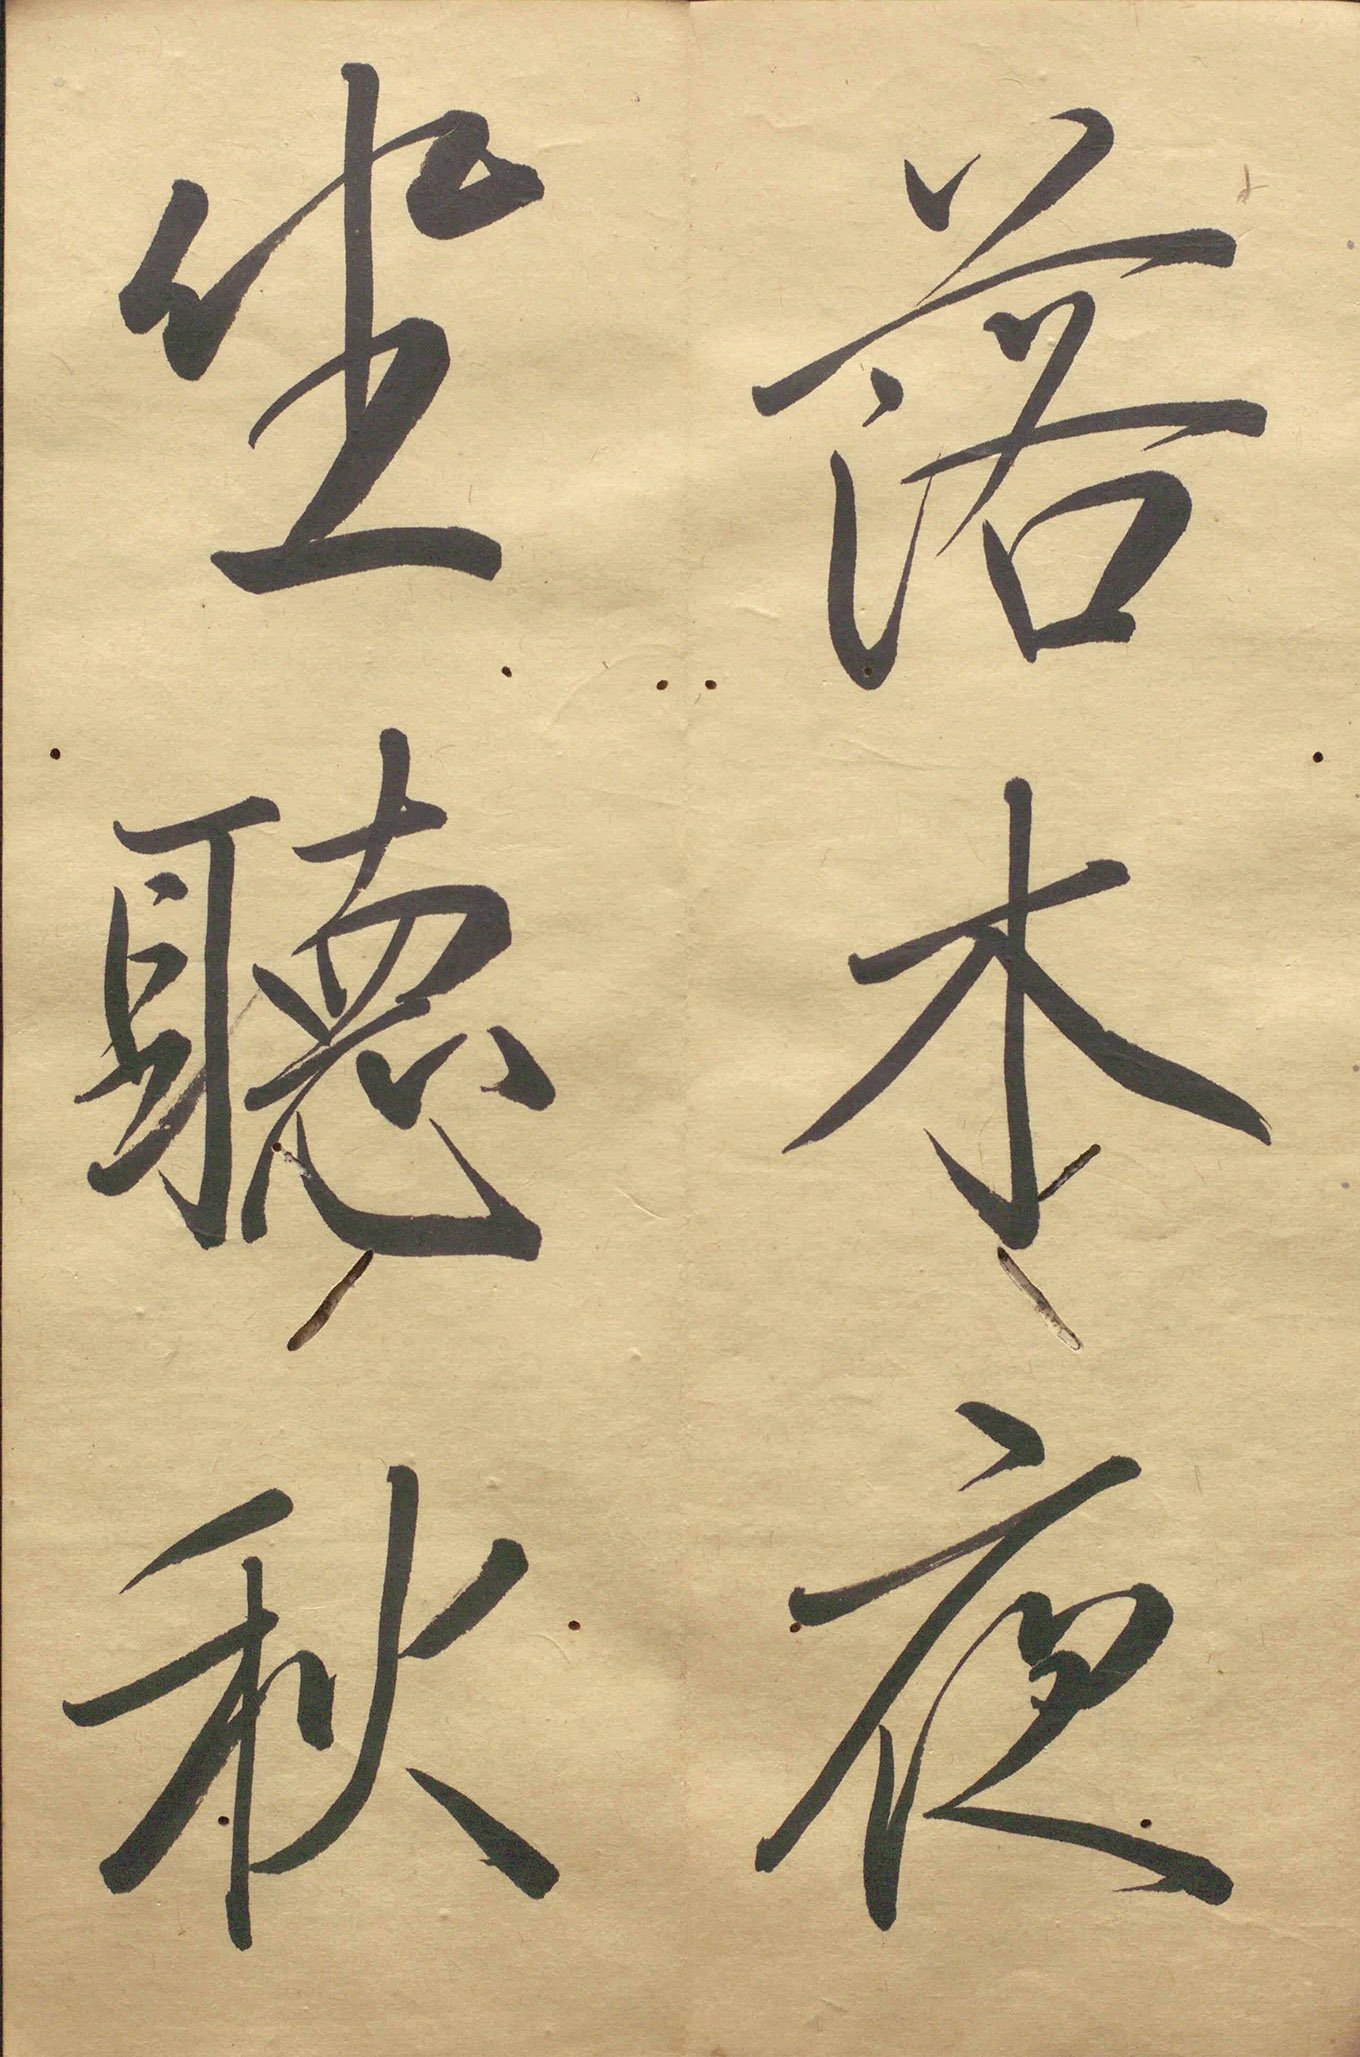 落木夜
坐聽秋